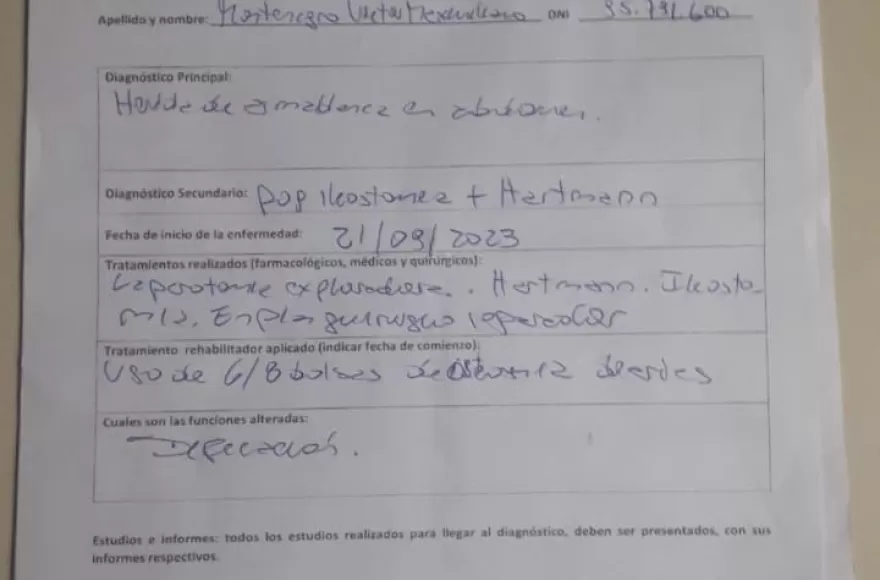 Apellido y nombre: Victor DNI 35.791.600
Diagnóstico Principal:
Herida de arma blanca en abdomen.
Diagnóstico Secundario: POP ileostomia + Hartmann
Fecha de inicio de la enfermedad: 21/09/2023
Tratamientos realizados (farmacológicos, médicos y quirúrgicos):
Laparotomia exploradora. Hartmann. Ileosto-
mia. En plan quirurgico reparador
Tratamiento rehabilitador aplicado (indicar fecha de comienzo):
Uso de 6/8 bolsas de ostomia
Cuales son las funciones alteradas:
Defecación.
Estudios e informes: todos los estudios realizados para llegar al diagnóstico, deben ser presentados, con sus
informes respectivos.